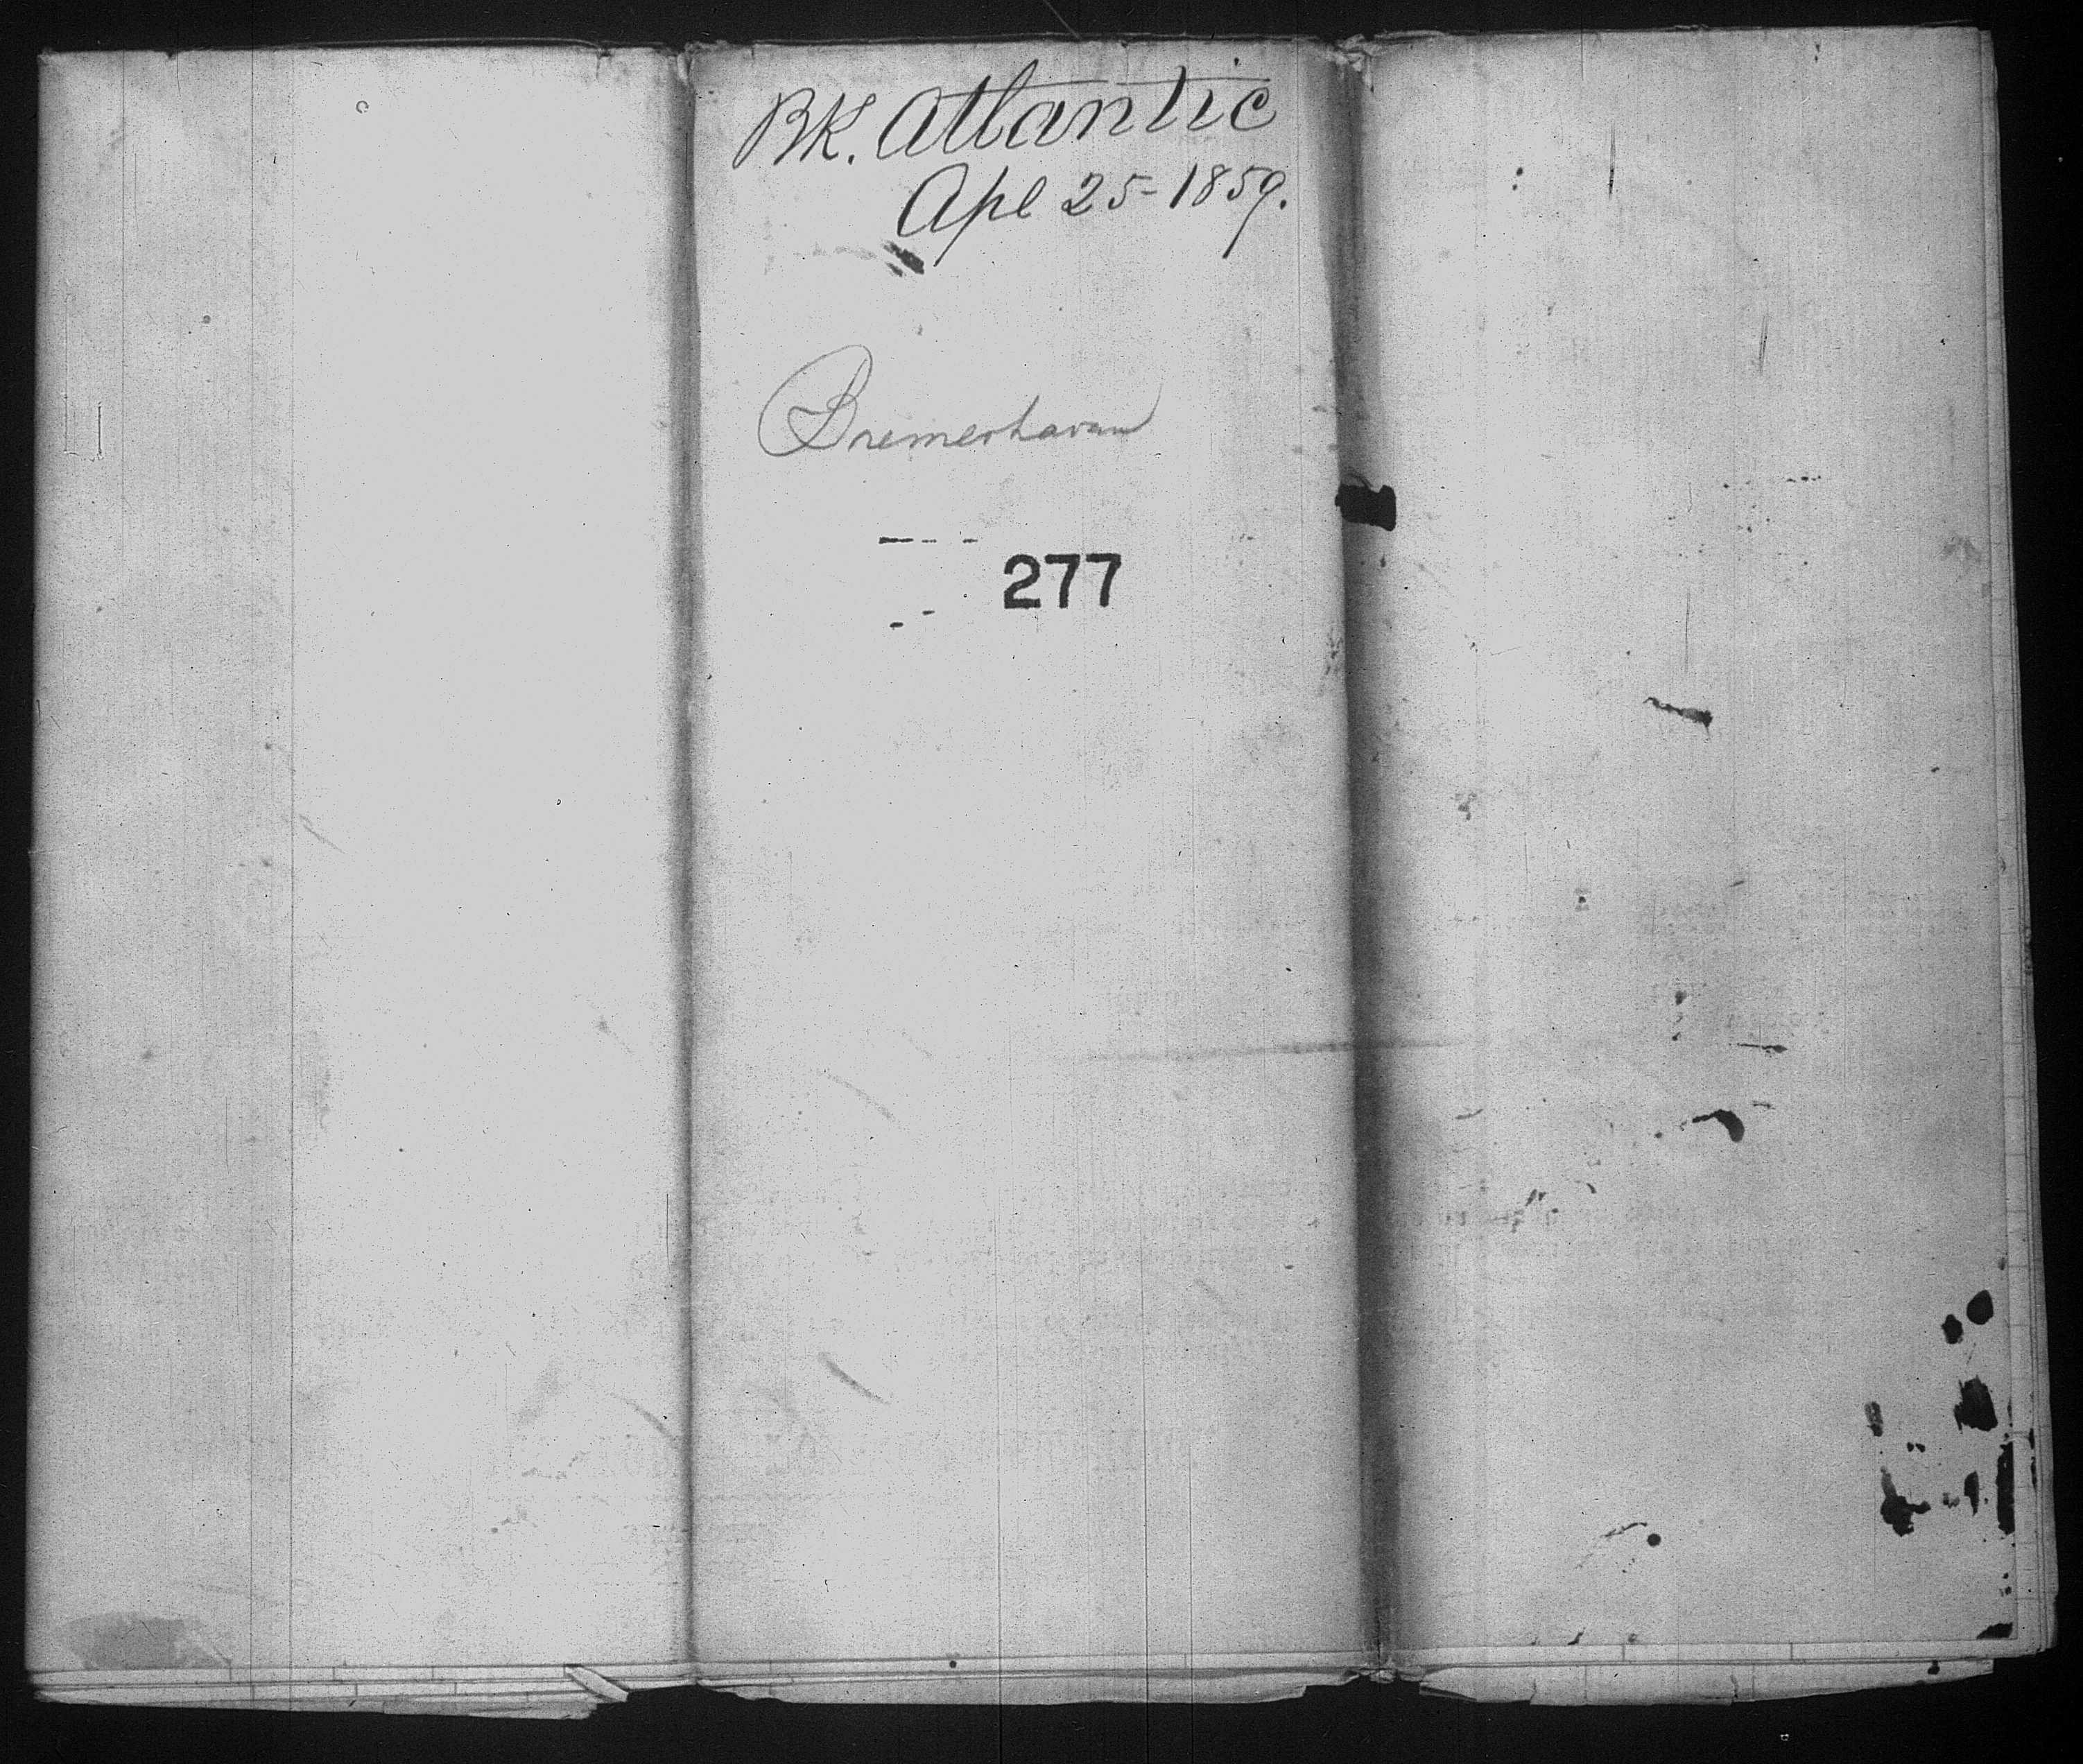 BK. Atlantic
Apl 25 - 1859.
Bremerhaven
277